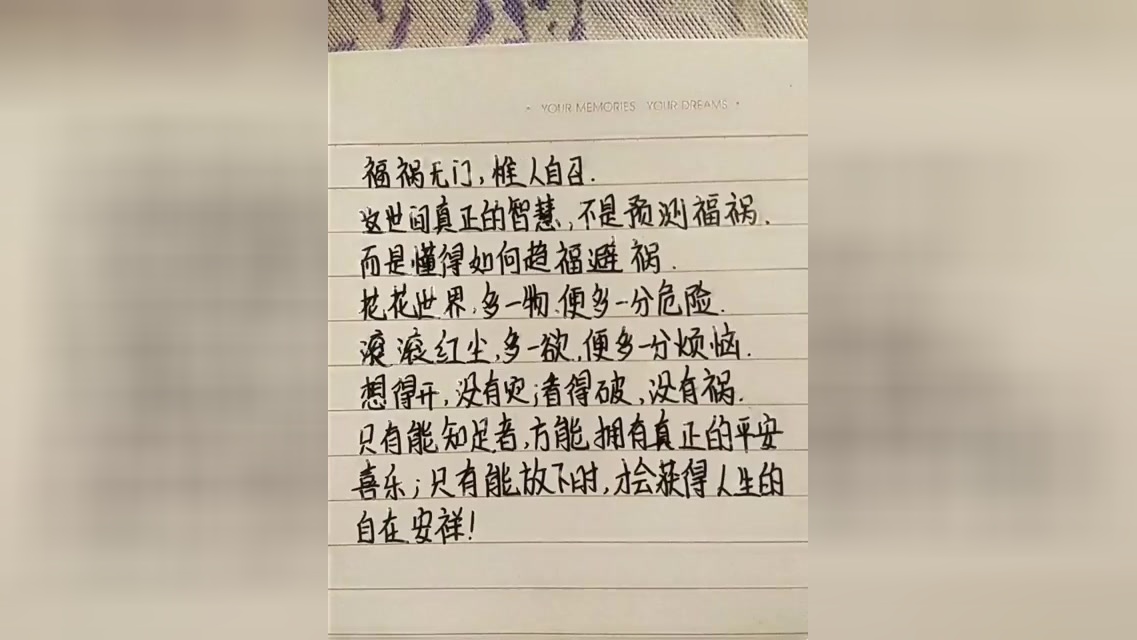 • YOUR MEMORIES YOUR DREAMS •
福祸无门,惟人自召.
这世间真正的智慧,不是预测福祸.
而是懂得如何趋福避祸.
花花世界,多一物、便多一分危险.
滚滚红尘,多一欲,便多一分烦恼.
想得开,没有灾;看得破,没有祸.
只有能知足者,方能拥有真正的平安
喜乐;只有能放下时,才会获得人生的
自在安祥!